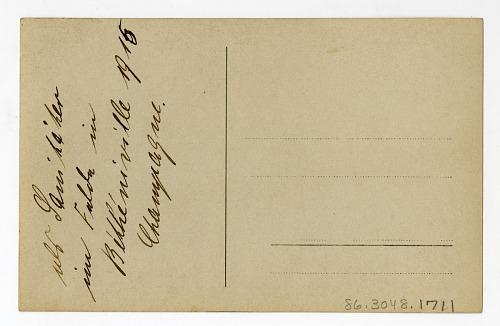 als Sanitäter
im Felde in
Betheniville 1915
Champagne.
86.3048.1711